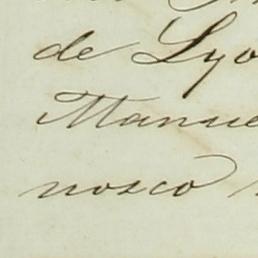 de Lyo
Manue
nosco